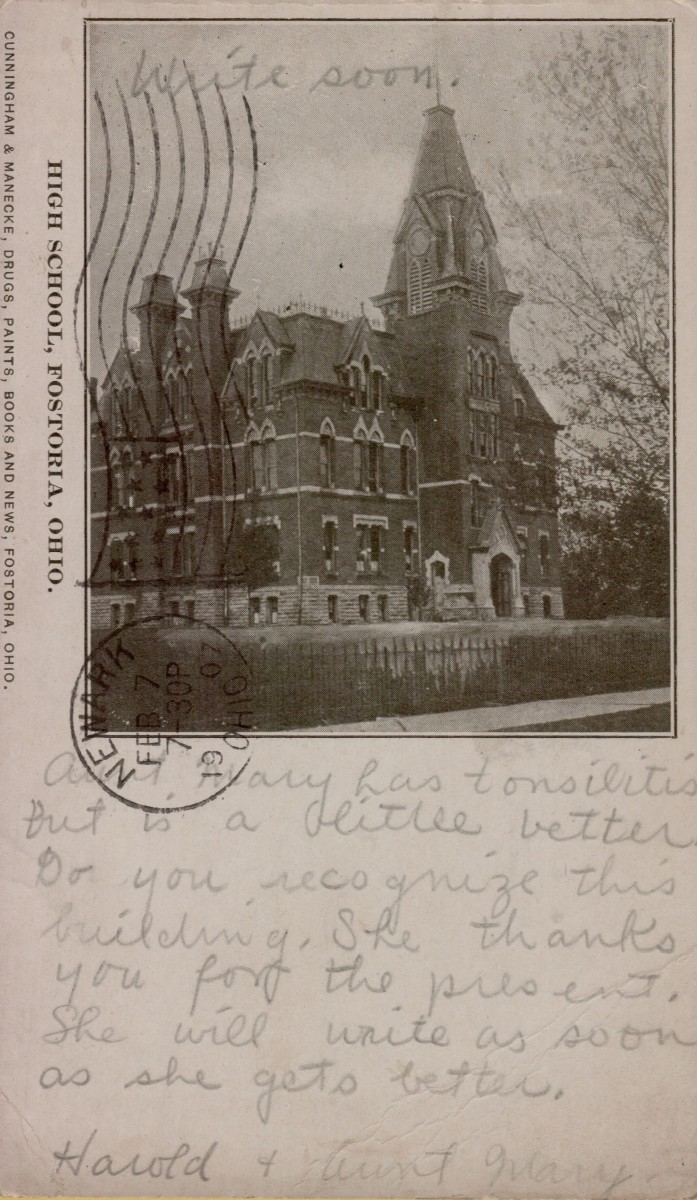 Write soon.
HIGH SCHOOL, FOSTORIA, OHIO.
CUNNINGHAM & MANECKE, DRUGS, PAINTS, BOOKS AND NEWS, FOSTORIA, OHIO.
NEWARK OHIO
FEB 7
7-30P
1907
Aunt Mary has tonsilitis
but is a little better.
Do you recognize this
building. She thanks
you for the present.
She will write as soon
as she gets better.
Harold + Aunt Mary.